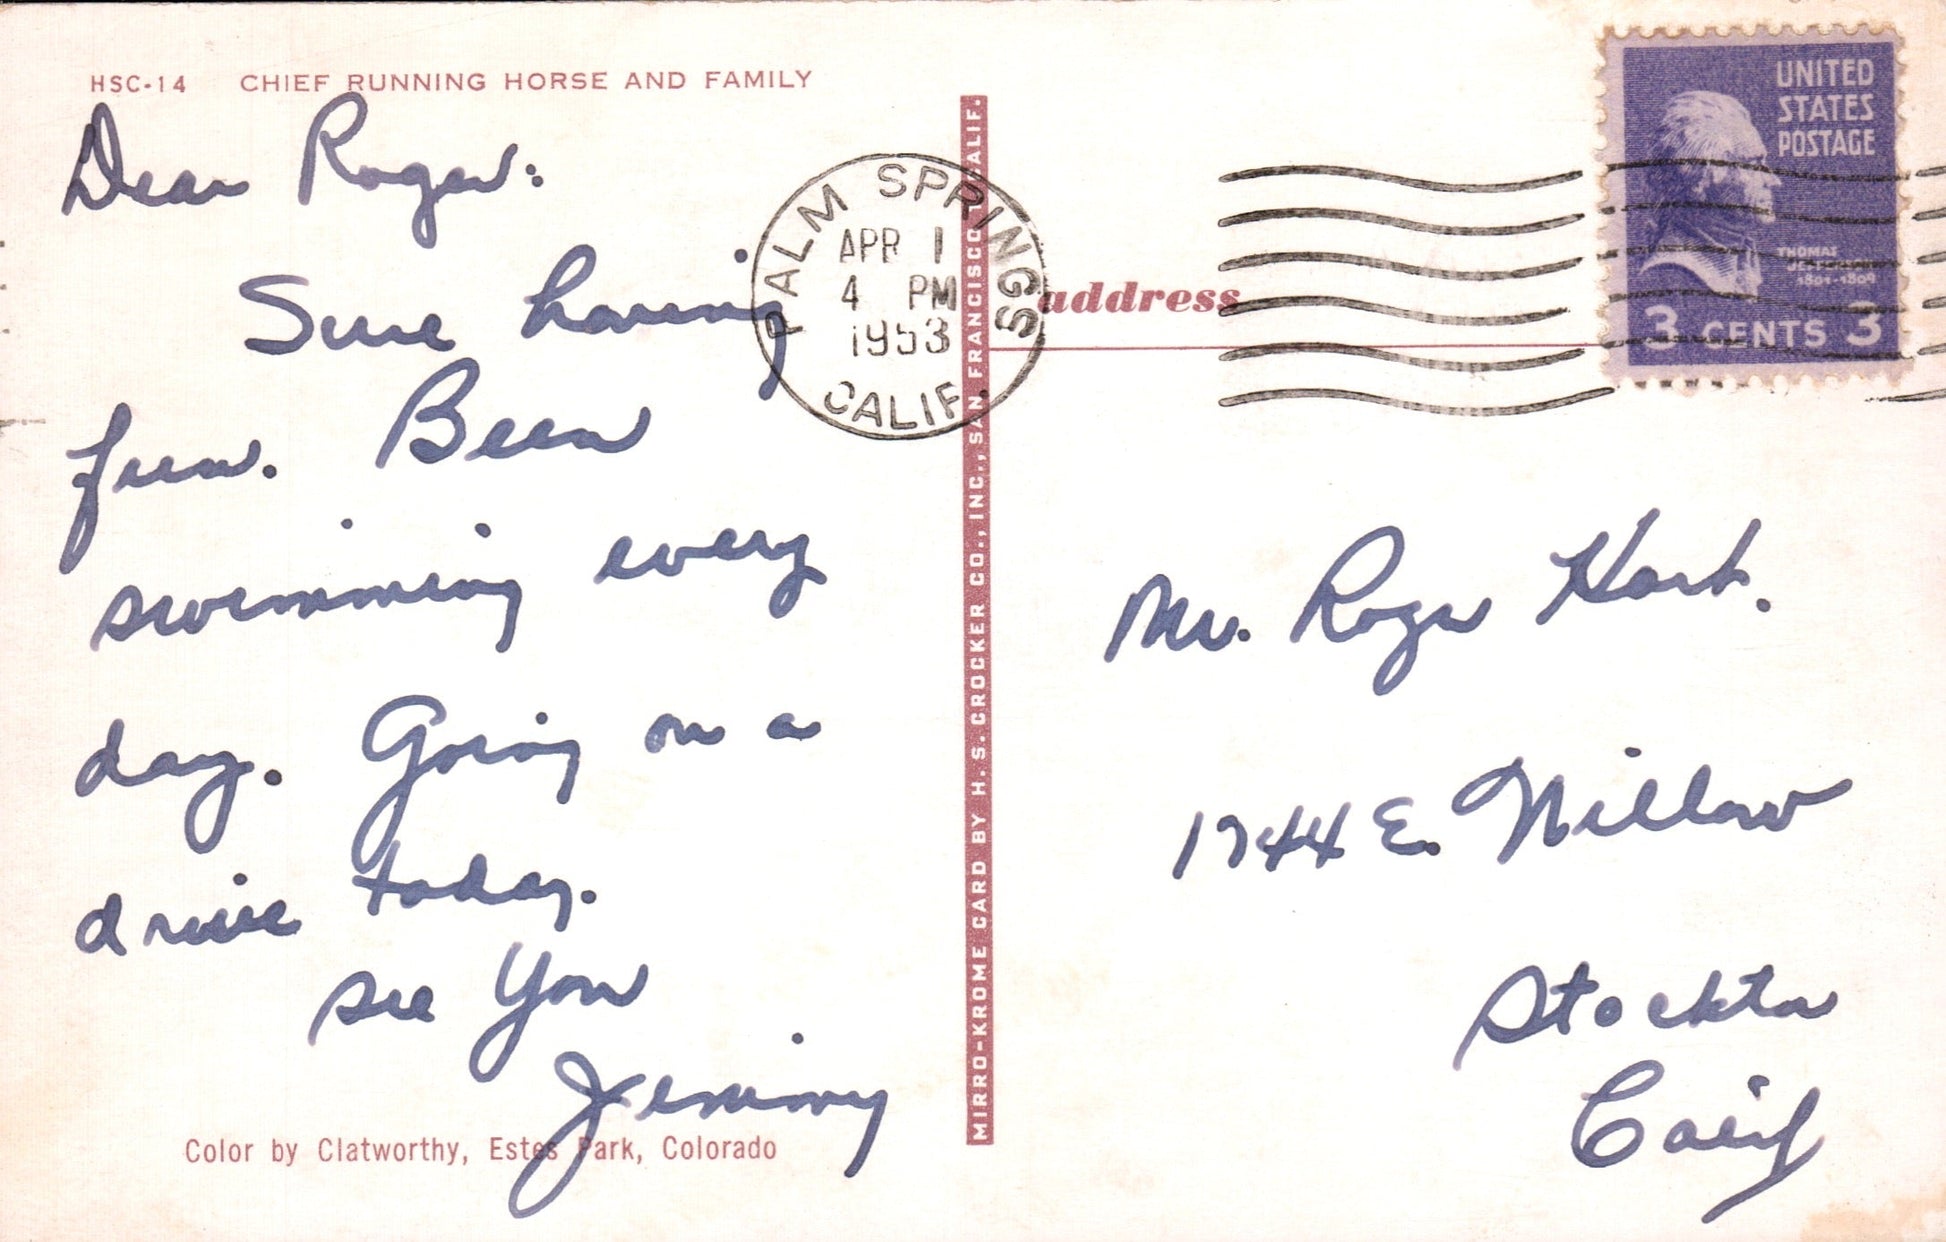 HSC-14 CHIEF RUNNING HORSE AND FAMILY
Dear Roger:
Sure having
fun. Been
swimming every
day. Going on a
drive today.
see you
Jimmy
Color by Clatworthy, Estes Park, Colorado
MIRRO-KROME CARD BY H. S. CROCKER CO., INC., SAN FRANCISCO 1, CALIF.
PALM SPRINGS
APR 1
4 PM
1953
CALIF.
address
UNITED
STATES
POSTAGE
THOMAS
JEFFERSON
1801-1809
3 CENTS 3
Mr. Roger Hart.
1744 E. Willow
Stockton
Calif